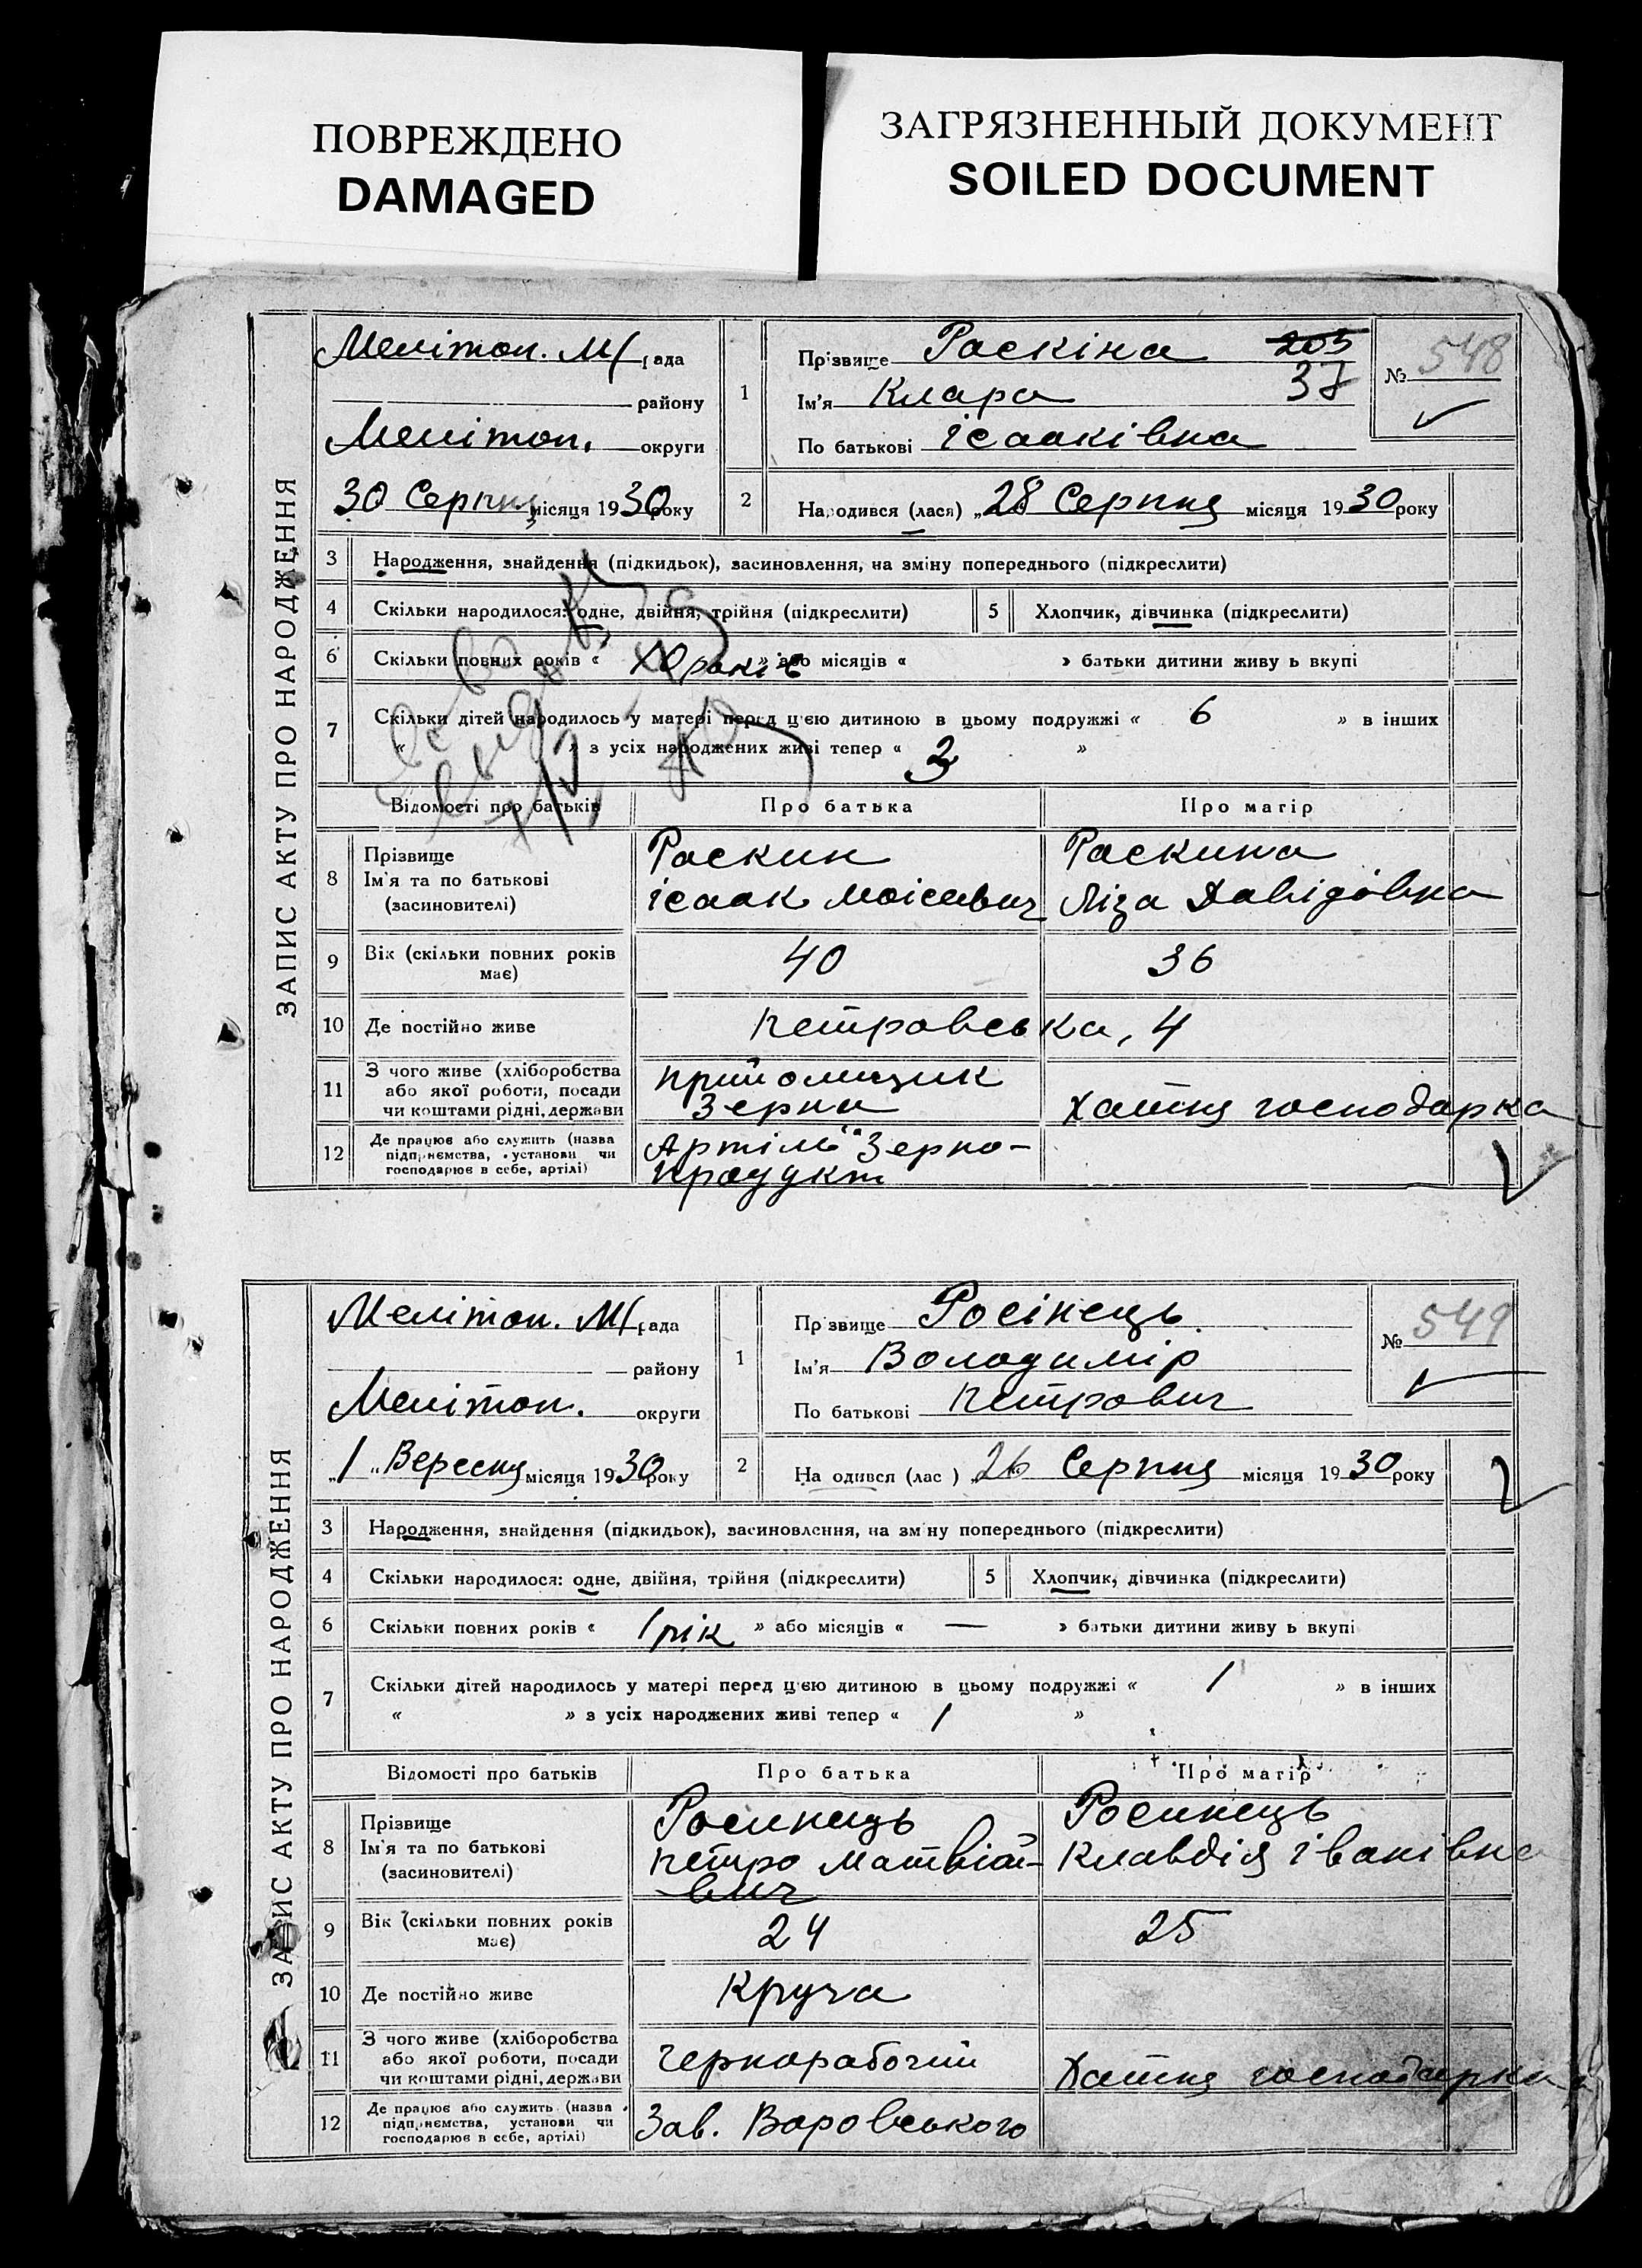 ПОВРЕЖДЕНО
DAMAGED
ЗАГРЯЗНЕННЫЙ ДОКУМЕНТ
SOILED DOCUMENT
ЗАПИС АКТУ ПРО НАРОДЖЕННЯ
Мелітоп. М/рада
району
Мелітоп. округи
30 Серпня місяця 1930 року
1
Прізвище Раскіна 205
Ім'я Клара 37
По батькові Ісааківна
№ 548
2 Народився (лася) „28 Серпня місяця 1930 року
3 Народження, знайдення (підкидьок), засиновлення, на зміну попереднього (підкреслити)
4 Скільки народилося: одне, двійня, трійня (підкреслити) 5 Хлопчик, дівчинка (підкреслити)
6 Скільки повних років « 10 років » або місяців « » батьки дитини живу ь вкупі
7 Скільки дітей народилось у матері перед цією дитиною в цьому подружжі « 6 » в інших
« » з усіх народжених живі тепер « 3 »
Відомості про батьків Про батька Про матір
8 Прізвище
Ім'я та по батькові
(засиновителі)
Раскин
Ісаак Моісеевич
Раскина
Ліза Давідовна
9 Вік (скільки повних років має) 40 36
10 Де постійно живе Петровська, 4
11 З чого живе (хліборобства
або якої роботи, посади
чи коштами рідні, держави
прийомщик
зерна
Хатня господарка
12 Де працює або служить (назва
підприємства, установи чи
господарює в себе, артілі)
Артіль "Зерно-
продукт
ЗАПИС АКТУ ПРО НАРОДЖЕННЯ
Мелітоп. М/рада
району
Мелітоп. округи
„1„ Вересня місяця 1930 року
1
Пр звище Росінець
Ім'я Володимір
По батькові Петрович
№ 549
2 На одився (лас ) „26 Серпня місяця 1930 року
3 Народження, знайдення (підкидьок), засиновлення, на зм ну попереднього (підкреслити)
4 Скільки народилося: одне, двійня, трійня (підкреслити) 5 Хлопчик, дівчинка (підкреслити)
6 Скільки повних років « 1 рік » або місяців « — » батьки дитини живу ь вкупі
7 Скільки дітей народилось у матері перед цією дитиною в цьому подружжі « 1 » в інших
« » з усіх народжених живі тепер « 1 »
Відомості про батьків Про батька Про матір
8 Прізвище
Ім'я та по батькові
(засиновителі)
Росинець
Петро Матвій-
вич
Росинець
Клавдія Іванівна
9 Вік (скільки повних років має) 24 25
10 Де постійно живе Круча
11 З чого живе (хліборобства
або якої роботи, посади
чи коштами рідні, держави
Чернорабочий
Хатня господарка
12 Де працює або служить (назва
підприємства, установи чи
господарює в себе, артілі)
Зав. Воровського